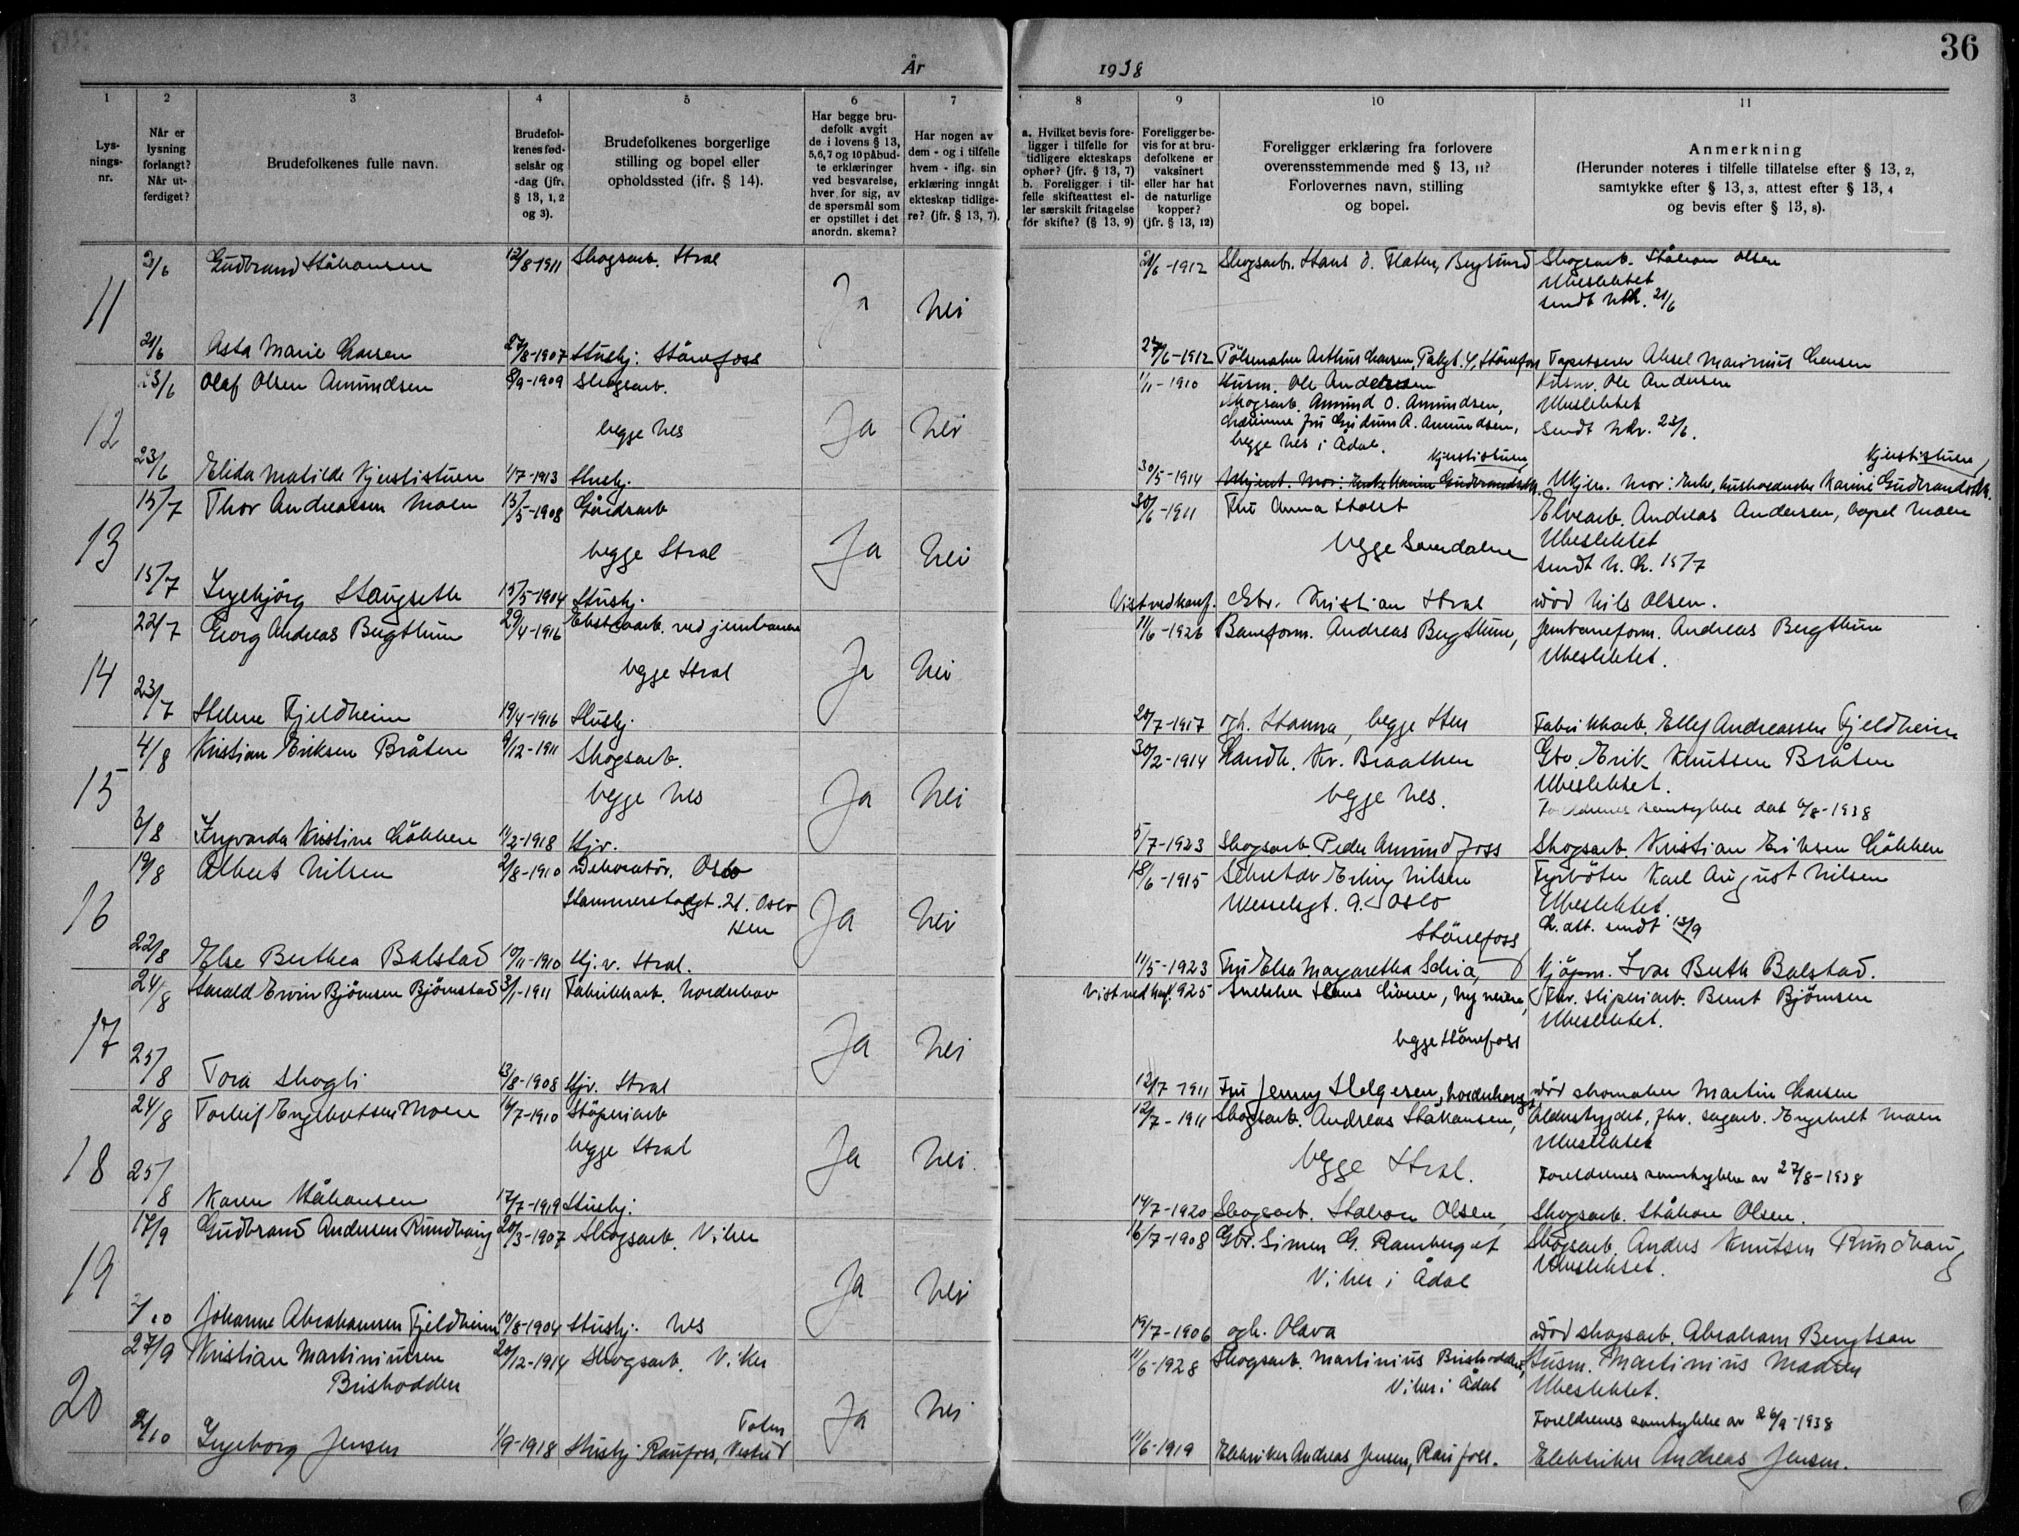 36
År
1938
1
2
3
4
5
6
7
8
9
10
11
Lys-
nings-
nr.
Når er
lysning
forlangt?
Når ut-
ferdiget?
Brudefolkenes fulle navn.
Brudefol-
kenes fød-
selsår og
-dag (jfr.
§ 13, 1, 2
og 3).
Brudefolkenes borgerlige
stilling og bopel eller
opholdssted (ifr. § 14).
Har begge bru-
defolk avgit
de i lovens § 13,
5, 6, 7 og 10 påbud-
te erklæringer
ved besvarelse,
hver for sig, av
de spørsmål som
er opstillet i det
anordn. skema?
Har nogen av
dem - og i tilfelle
hvem - iflg. sin
erklæring inngåt
ekteskap tidlige-
re? (jfr. § 13, 7).
a. Hvilket bevis fore-
ligger i tilfelle for
tidligere ekteskaps
ophør? (jfr. § 13, 7)
b. Foreligger i til-
felle skifteattest el-
ler særskilt fritagelse
for skifte? (§ 13, 9)
Foreligger be-
vis for at bru-
defolkene er
vaksinert
eller har hat
de naturlige
kopper?
(jfr. § 13, 12)
Foreligger erklæring fra forlovere
overensstemmende med § 13, 11?
Forlovernes navn, stilling
og bopel.
Anmerkning
(Herunder noteres i tilfelle tillatelse efter § 13, 2,
samtykke efter § 13, 3, attest efter § 13, 4
og bevis efter § 13, 8).
11
Gudbrand Håkonsen 12/8-1911 Skogsarb. Stral
Ja Nei
21/6-1912 Skogsarb. Hans O. Flaten, Skogsarb. Håkon Olsen
Ubeslektet
sendt 21/6
21/6 Asta Marie Larsen 27/8-1907 Hushj. Hönefoss
27/6-1912 Pölsemaker Arthur Larsen, Hönefoss Tapetserer Aksel Marinius Larsen
12
23/6 Olaf Olsen Amundsen 8/9-1909 Skogsarb.
begge Nes
Ja Nei
1/11-1910 Husm. Ole Andersen Husm. Ole Andersen
Skogsarb. Amund O. Amundsen, Ubeslektet
A. Amundsen, Sendt 23/6.
begge Nes i Ådal.
23/6 Elida Matilde Kjerstistuen 1/7-1913 Hushj.
Kjerstistuen Kjerstistuen
30/5-1914 Mor: Enke Karine Gudbrandsdtr. Mor: Enke, Karine Gudbrandsdtr.
13
15/7 Thor Andreassen Moen 15/5-1908 Gårdsarb
begge Stral
Ja Nei
30/6-1911 Fru Anna Holst Elvearb. Andreas Andersen, bopel Moen
begge Somdalen Ubeslektet
sendt 15/7
15/7 Ingebjörg Haugseth 15/5-1904 Hushj.
Vist ved konf. Gbr. Kristian Stral död Nils Olsen.
14
22/7 Georg Andreas Bergthun 29/4-1916 Ekstraarb. ved jernbanen
begge Stral
Ja Nei
11/6-1926 Baneform. Andreas Bergthun, Jernbaneform. Andreas Bergthun
Ubeslektet.
23/7 Helene Fjeldheim 19/4-1916 Hushj.
20/7-1917 og h. Hanna, begge Hen Fabrikkarb. Ellef Andreassen Fjeldheim
15
4/8 Kristian Eriksen Bråten 9/12-1911 Skogsarb.
begge Nes
Ja Nei
30/2-1914 Landh. Kr. Braathen Gbr. Erik Knutsen Bråten
begge Nes. Ubeslektet.
Foreldrenes samtykke dat 6/8-1938
6/8 Ingvarda Kristine Løkken 11/2-1918 Hjv.
5/7-1923 Skogsarb. Peder Amundfoss Skogsarb. Kristian Eriksen Løkken
16
19/8 Albert Nilsen 2/8-1910 Dekoratör. Oslo
Hammerstadgt. 21. Oslo
Hen
Ja Nei
18/6-1915 Sekretær Erling Nilsen Fyrböter Karl August Nilsen
Wesselsgt. 9. Oslo Ubeslektet.
Hönefoss L. att. sendt 13/9
22/8 Else Berthea Balstad 10/11-1910 Hj. v. Stral.
11/5-1923 Fru Elsa Margaretha Schia, Kjöpm. Ivar Buth Balstad.
17
24/8 Harald Erwin Björnsen Björnstad 3/1-1911 Fabrikkarb. Norderhov
Ja Nei
Vist ved konf. 925 Snekker Hans begge Hönefoss Fhv. sliperiarb. Bernt Björnsen
Ubeslektet.
25/8 Tora Skogli 13/8-1908 Hjv. Stral
12/7-1911 Fru Jenny Helgesen, Norderhov död skomaker Martin Larsen
18
24/8 Torleif Engebretsen Moen 16/7-1910 Støperiarb
begge Stral
Ja Nei.
12/7-1911 Skogsarb. Andreas Håkonsen, Alderstrygdet, fhv. sagarb. Engebret Moen
begge Stral. Ubeslektet
Foreldrenes samtykke av 27/8-1938
25/8 Karen Håkonsen 17/7-1919 Hushj.
14/7-1920 Skogsarb. Håkon Olsen, Skogsarb. Håkon Olsen.
19
17/9 Gudbrand Andersen Rundhaug 20/3-1907 Skogsarb. Viker
Ja Nei
16/7-1908 Gbr. Simen G. Ramberg af Skogsarb. Anders Knutsen Rundhaug
Viker i Ådal Ubeslektet.
2/10 Johanne Abrahamsen Fjeldheim 10/8-1904 Hushj. Nes
19/7-1906 og h. Olava död skogsarb. Abraham Bengtson
20
27/9 Kristian Martiniussen 20/12-1914 Skogsarb. Viker
Briskodden
Ja Nei
11/6-1928 Skogsarb. Martinius Briskodden, Husm. Martinius Madsen
Viker i Ådal Ubeslektet.
Foreldrenes samtykke av 26/9-1938
2/10 Ingeborg Jensen 1/9-1918 Hushj. Raufoss, Vestre Toten
11/6-1919 Elektriker Andreas Jensen, Raufoss. Elektriker Andreas Jensen.